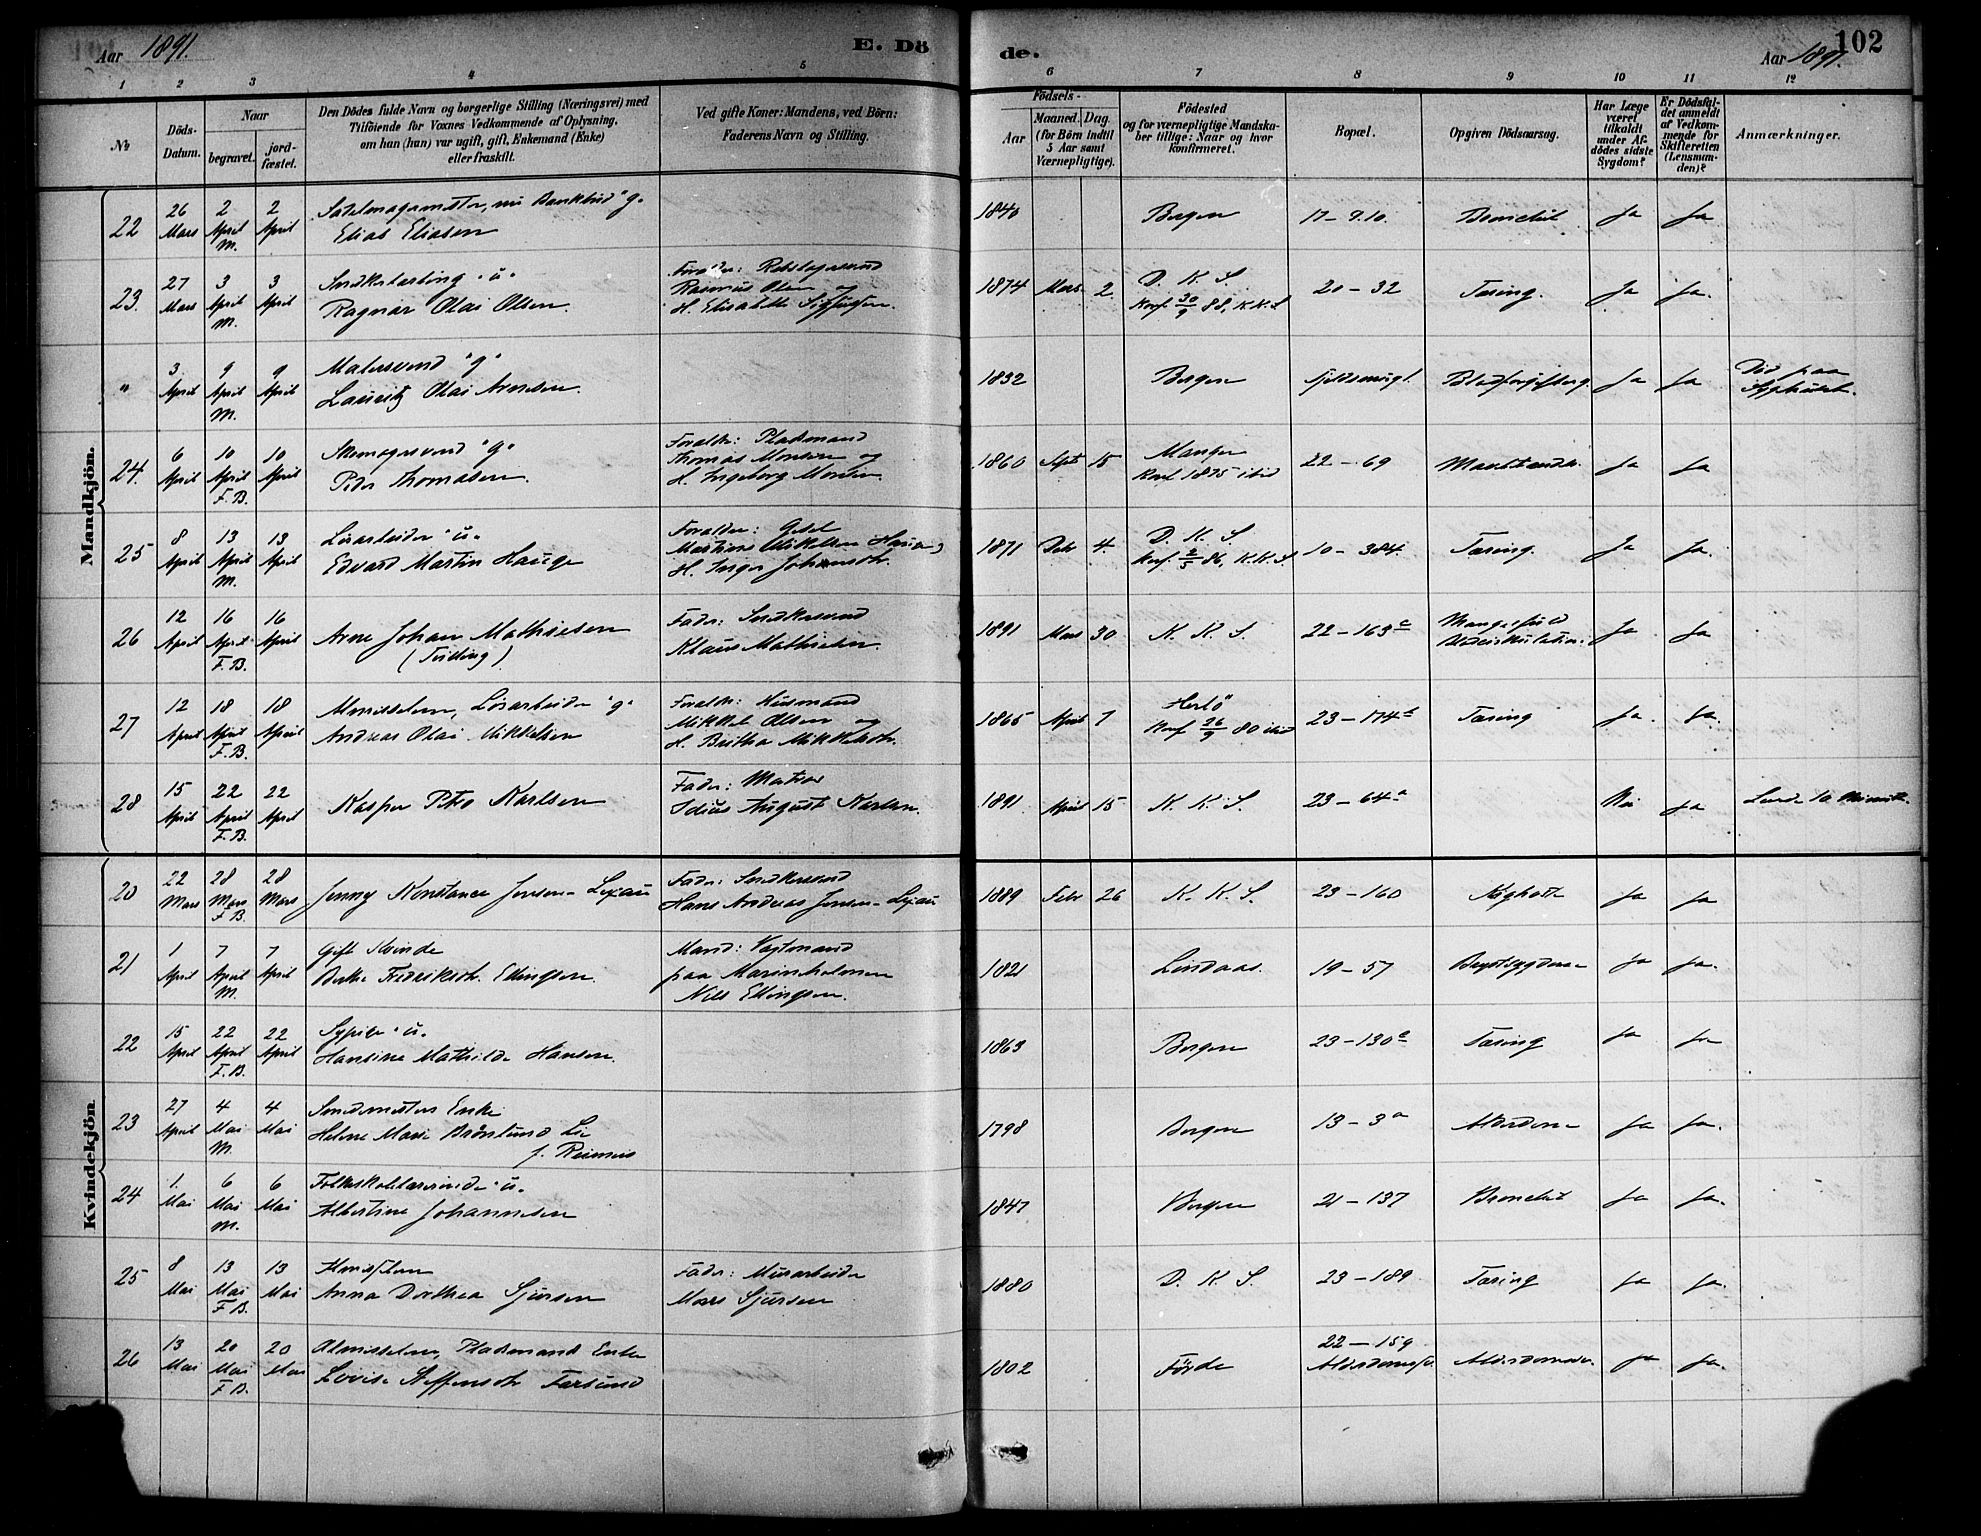 Aar 1891.
E. Dö
de.
Aar 1891.
102
1 2 3 4 5 6 7 8 9 10 11 12
No
Döds-
Datum.
Naar
begravet.
jord-
fæstet.
Den Dödes fulde Navn og borgerlige Stilling (Næringsvei) med
Tilföiende for Voxnes Vedkommende af Oplysning,
om han (hun) var ugift, gift, Enkemand (Enke)
eller fraskilt.
Ved gifte Koner: Mandens, ved Börn:
Faderens Navn og Stilling.
Födsels-
Aar
Maaned.
Dag.
(for Börn indtil
5 Aar samt
Værnepligtige).
Födested
og for værnepligtige Mandska-
ber tillige: Naar og hvor
konfirmeret.
Bopæl.
Opgiven Dödsaarsag.
Har Læge
været
tilkaldt
under Af-
dödes sidste
Sygdom?
Er Dödsfal-
det anmeldt
af Vedkom-
mende for
Skifteretten
(Lensman-
den)?
Anmærkninger.
Mandkjön.
22 26 Mars 2 April M. 2 April
Sadelmagermester, nu Bankbud "g"
Elias Eliasen
1840 Bergen 17 - 9.10. Bronchit Ja Ja
23. 27 Mars 3 April M. 3 April
Snedkerlærling "u"
Ragnar Olai Olsen.
Rasmus Olsen og
1874 Mars 2 D. K. S.
Konf. 30/9 88, K.K.S.
20 - 32 Tæring. Ja Ja.
" 3 April 9 April M. 9 April
Malersvend "g"
Lauritz Olai Arnesen.
1832 Bergen Blodforgiftning. Ja Ja
Död paa
24. 6 April 10 April F.B. 10 April
Skomagersvend "g"
Peder Thomasen.
Forældre: Pladsmand
Thomas Monsen og
H. Ingeborg Monsen.
1860 Sept 15 Manger
Konf 1875 ibid
22 - 69 Ja Ja
25 8 April 13 April M. 13 April
Lösarbeider "u"
Edvard Martin Hauge
1871 Debr 4. D. K. S.
86, K.K.S.
10 - 384. Tæring. Ja Ja.
26 12 April 16 April F.B. 16 April
Arne Johan Mathiesen
(Tvilling)
Fader: Snedkersvend
Klaus Mathiesen.
1891 Mars 30 K. K. S. 22 - 163
Mangelfuld
Blodcirkulation. Ja Ja
27 12 April 18 April F.B. 18 April
Almisselem, Lösarbeider "g"
Andreas Olai Mikkelsen
Forældre: Husmand
Mikkel Olsen og
H. Britha Mikkelsdtr.
1865 April 7 Herlö
Konf 26/9 80 ibid
23 - 174 Tæring Ja. Ja.
28 15 April 22 April F.B. 22 April
Kasper Petro Karlsen
Fader: Matros
August Karlsen.
1891 April 15 K. K. S. 23 - 64a Nei Ja Levede 10 Minutter.
Kvindekjön
20 22 Mars 28 Mars F.B. 28 Mars
Jenny Konstance Jensen-Lexau
Fader: Snedkersvend
Hans Andreas Jensen-Lexau
1889 Febr 26 K. K. S. 23 - 160 Kighoste Ja Ja
21 1 April 7 April M. 7 April
Gift Kvinde
Berthe Frederiksdtr. Ellingsen.
Mand: Vagtmand
paa Marineholmen
Nils Ellingsen.
1821 Lindaas. 19 - 57 Brystsygdom Ja Ja.
22 15 April 22 April F.B. 22 April
Sypige "u"
Hansine Mathilde Hansen.
1863 Bergen 23 - 130 Tæring Ja Ja
23 27 April 4 Mai M. 4 Mai
Enke
Helene Marie Brönlund Lie
f. Reimers
1798 Bergen 13 - 3a Alderdom Ja Ja.
24 1. Mai 6 Mai M. 6 Mai
Folkeskolelærerinde "u"
Albertine Johannesen
1847 Bergen 21 - 137 Bronchit Ja Ja.
25 8 Mai 13 Mai F.B. 13 Mai
Almisselem
Anna Dorthea Sjursen
Fader: Murarbeider
Mons Sjursen
1880 D. K. S. 23 - 189 Tæring Ja Ja.
26 13 Mai 20 Mai F.B. 20 Mai
Almisselem, Pladsmands Enke
Lovise Steffensdtr Farsund
1802 Förde 22 - 159
Ja Ja.